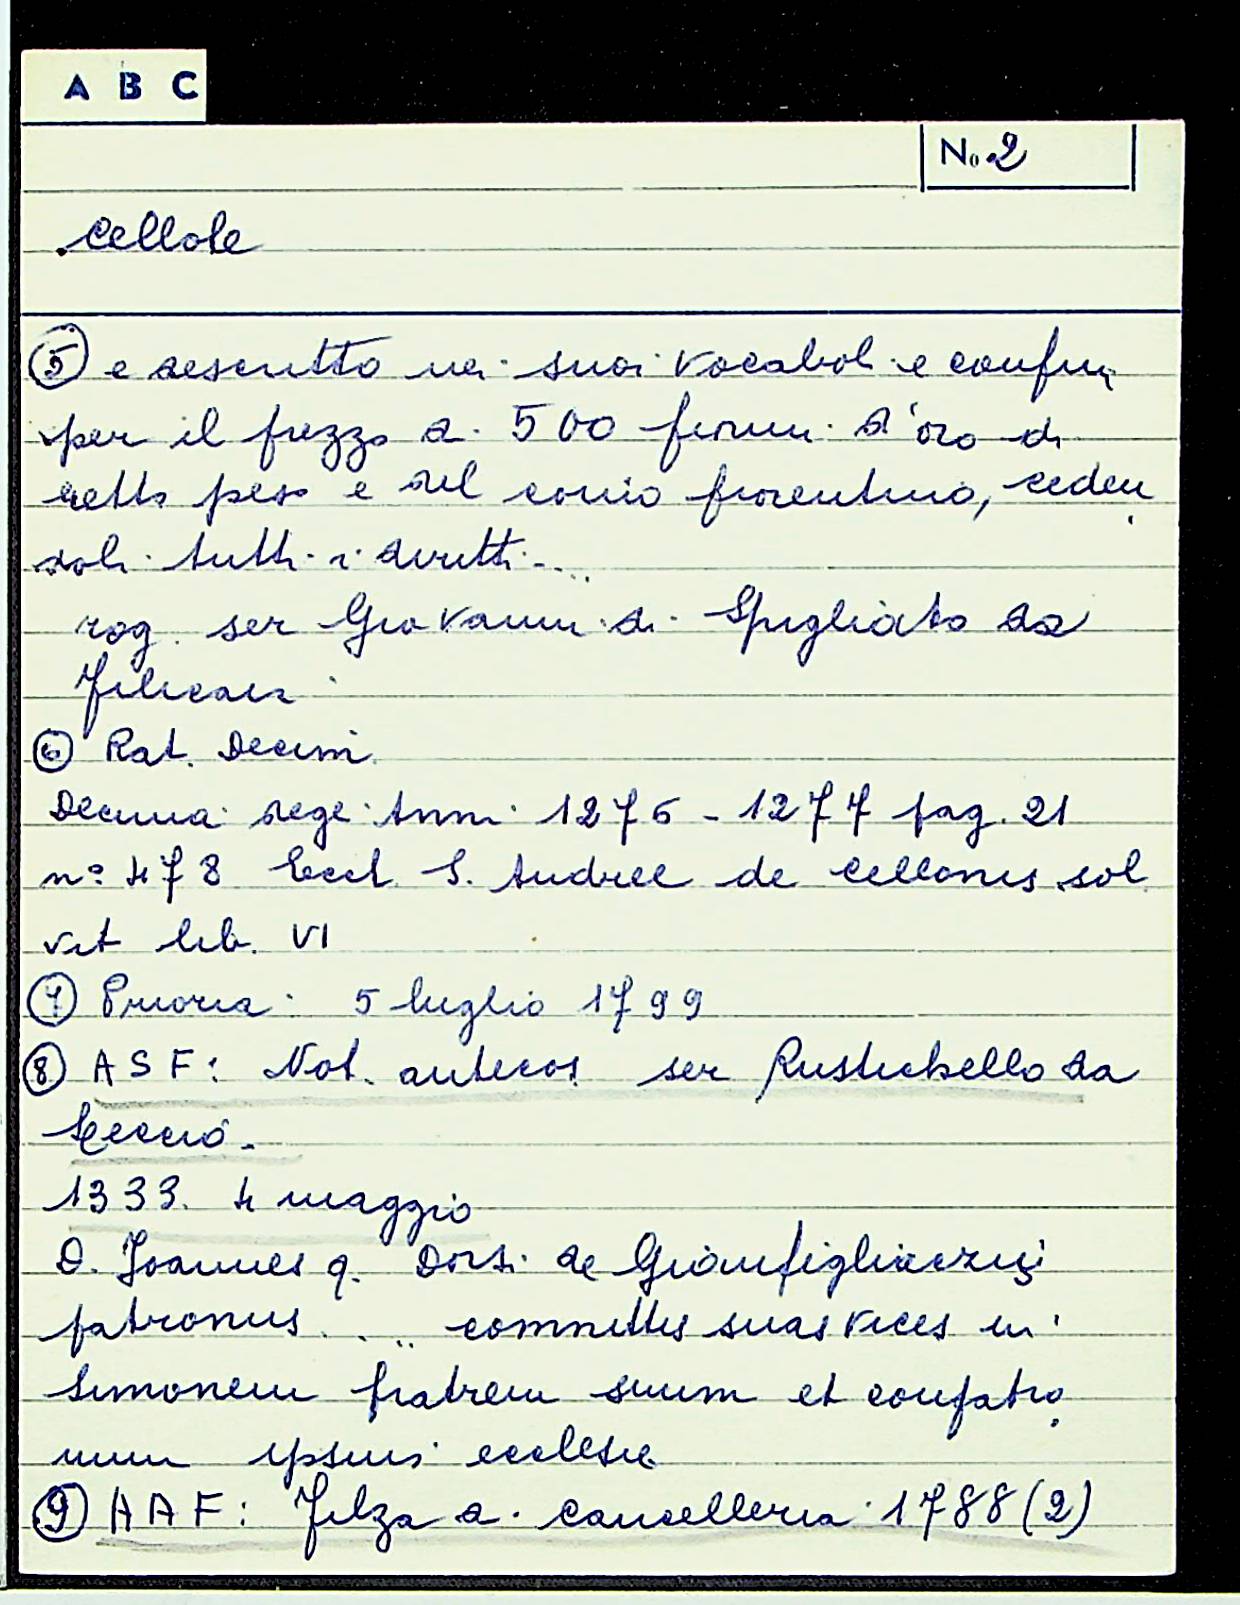 A B C
No 2
Cellole
5 e descritto nei suoi vocaboli e confini
per il prezzo di 500 fiorini d'oro di
retto peso e del conio fiorentino, ceden
doli tutti i diritti....
rog. ser Giovanni di Spigliato da
Filicaia
6 Rat. Decim.
Decima degli Anni 1276 - 1277 pag. 21
n° 478 Eccl. S. Andree de Cellonis sol
vit lib. VI
7 Prioria: 5 luglio 1799
8 ASF: Not. antecos. ser Rustichello da
Leccio.
1333. 4 maggio
D. Joannes q. Dorsi de Gianfigliazziis
patronus .... committis suas vices in
Simonem fratrem suum et conpatro
num ipsius ecclesie
9 AAF: Filza di Cancelleria 1788 (2)